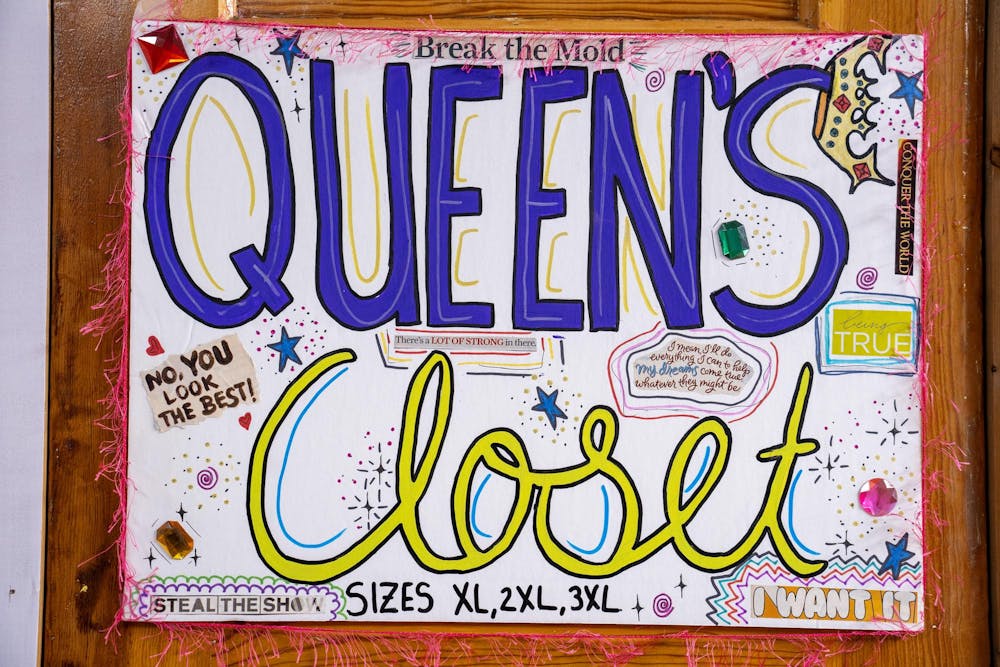 Break the Mold
QUEEN'S
CONQUER THE WORLD
being
TRUE
There's a LOT OF STRONG in there.
I mean I'll do
everything I can to help
my dreams come true
whatever they might be
NO, YOU
LOOK
THE BEST!
Closet
STEAL THE SHOW
SIZES XL, 2XL, 3XL
I WANT IT